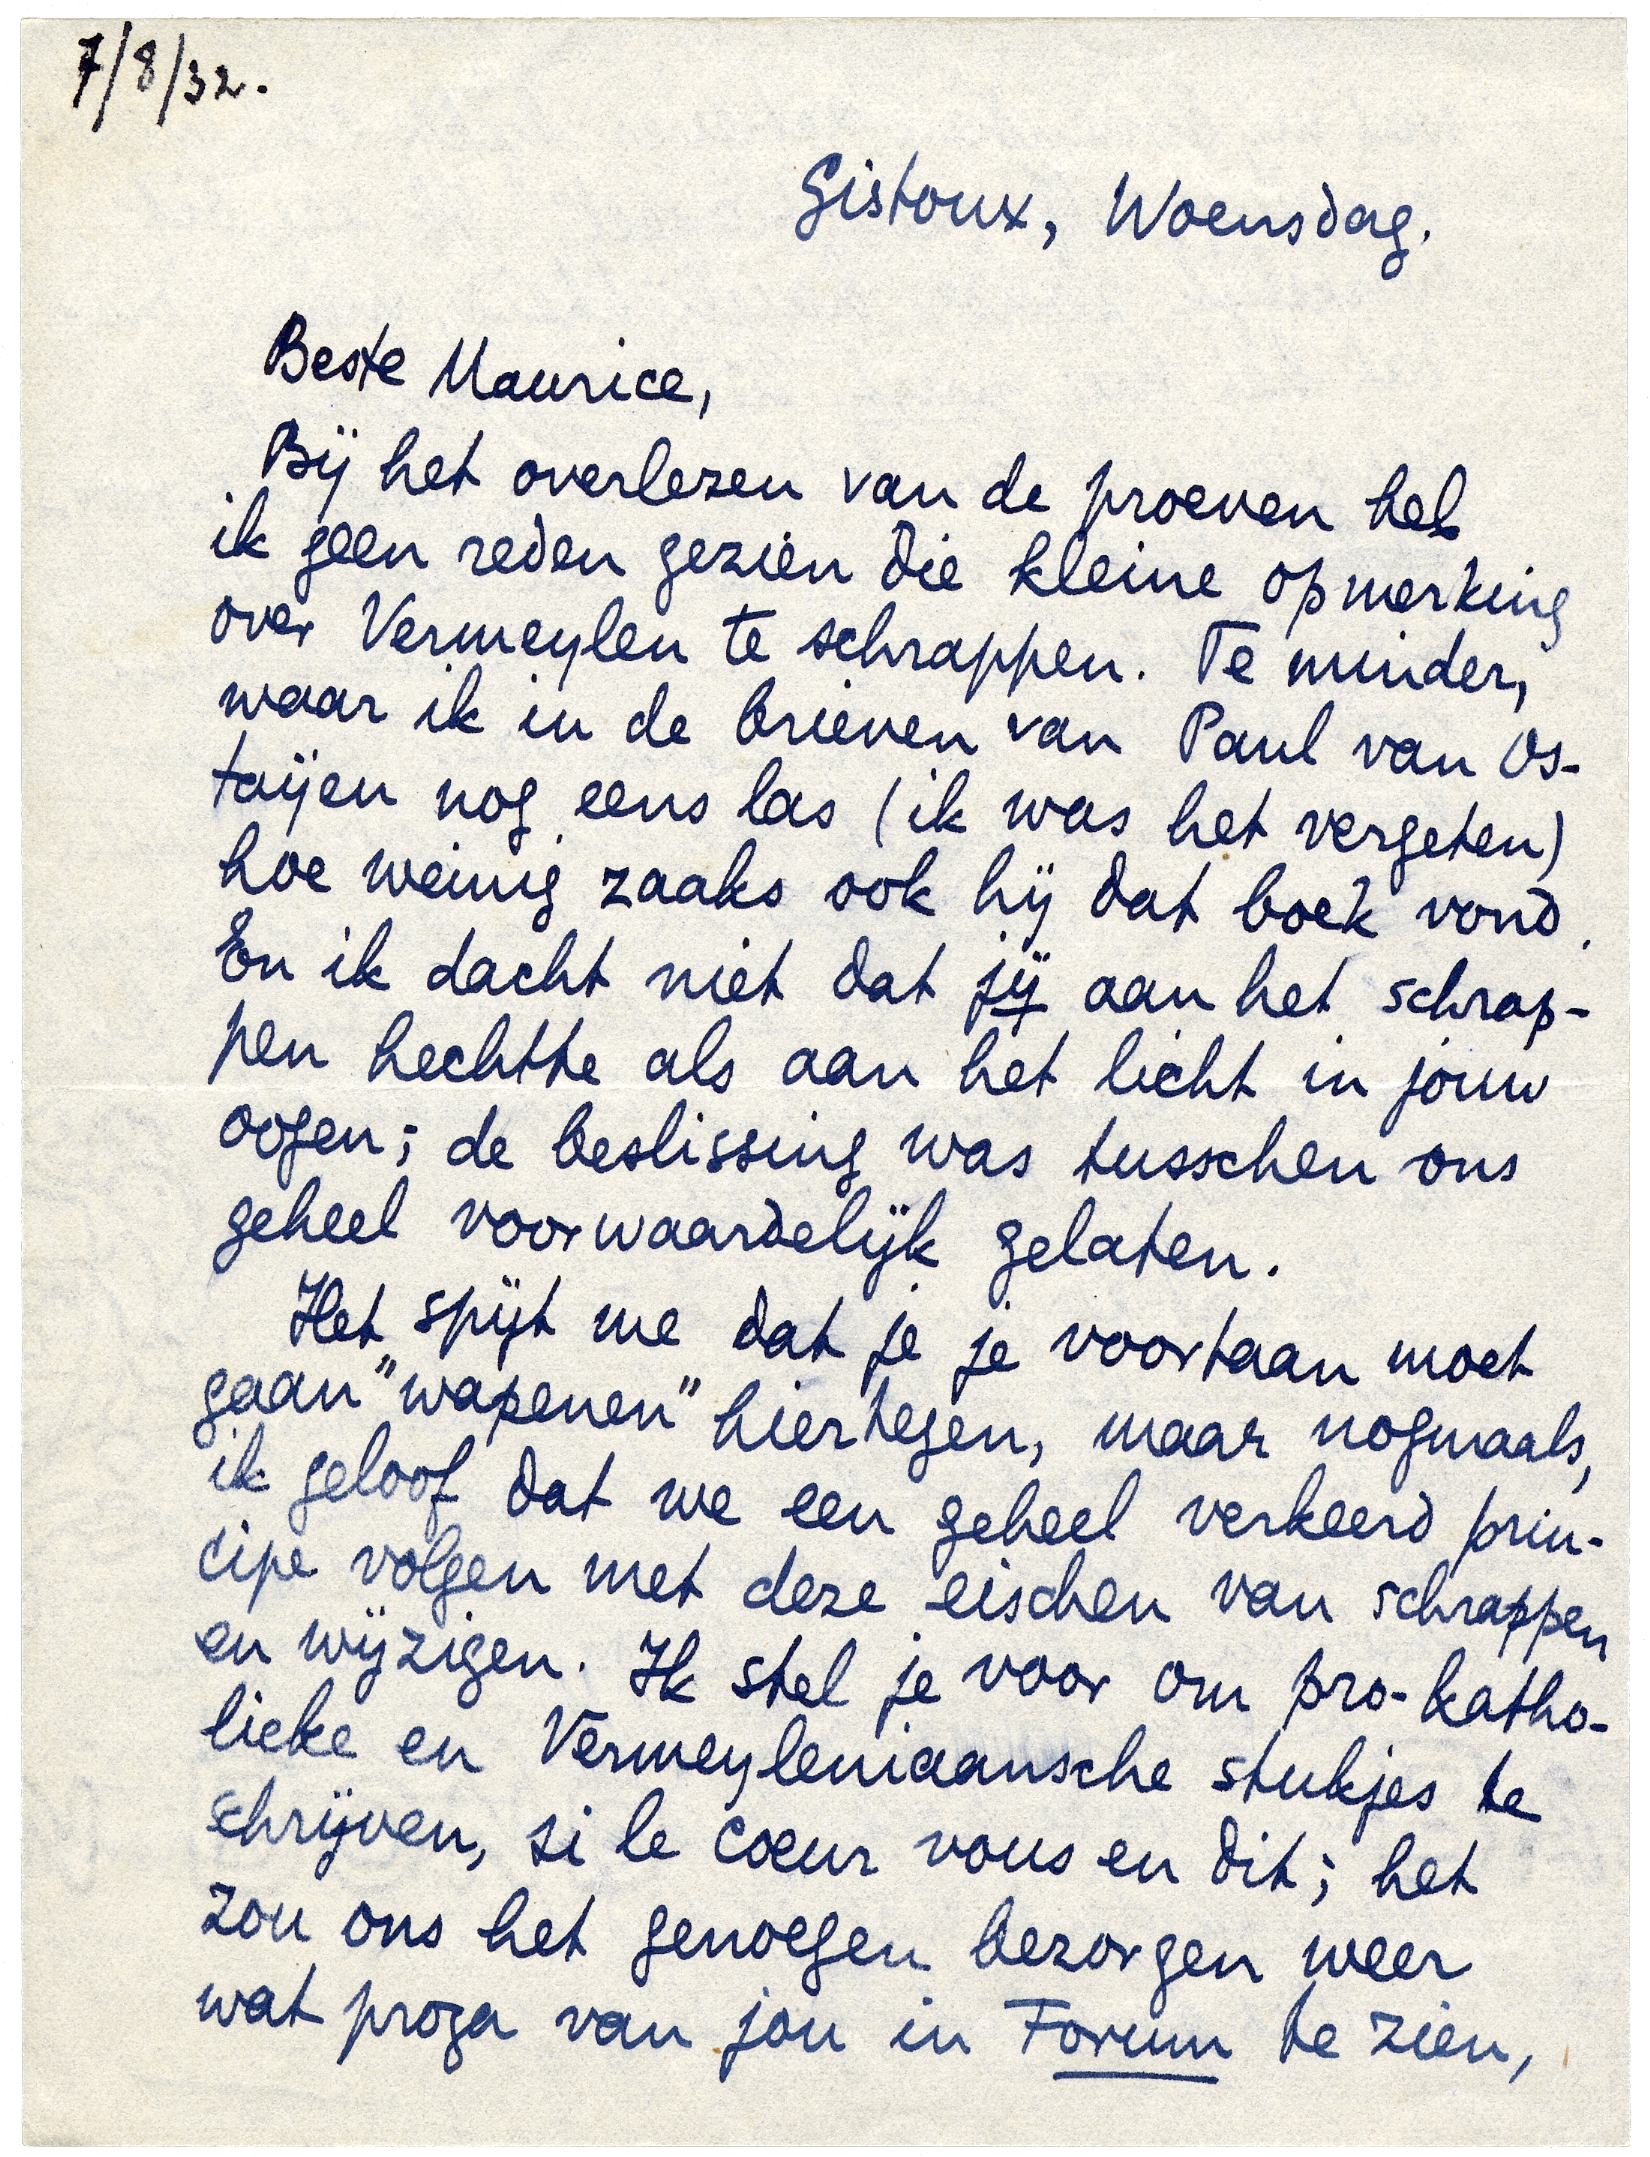 7/8/32.
Gistoux, Woensdag.
Beste Maurice,
Bij het overlezen van de proeven heb
ik geen reden gezien die kleine opmerking
over Vermeylen te schrappen. Te minder,
waar ik in de brieven van Paul van Os-
taijen nog eens las (ik was het vergeten)
hoe weinig zaaks ook hij dat boek vond.
En ik dacht niet dat jij aan het schrap-
pen hechtte als aan het licht in jouw
oogen; de beslissing was tusschen ons
geheel voorwaardelijk gelaten.
Het spijt me dat je je voortaan moet
gaan "wapenen" hiertegen, maar nogmaals,
ik geloof dat we een geheel verkeerd prin-
cipe volgen met deze eischen van schrappen
en wijzigen. Ik stel je voor om pro-katho-
lieke en Vermeyleniaansche stukjes te
schrijven, si le coeur vous en dit; het
zou ons het genoegen bezorgen weer
wat proza van jou in Forum te zien,